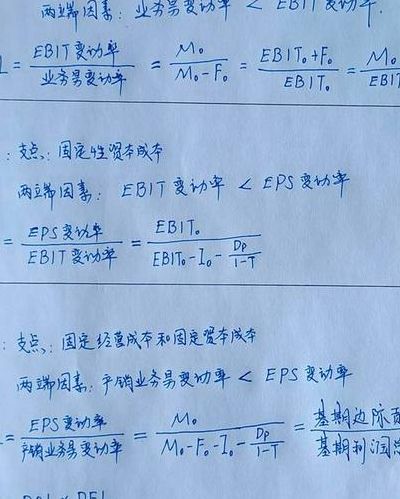 两端因素: 业务量变动率 < EBIT变动率.
= EBIT变动率 / 业务量变动率 = M₀ / M₀-F₀ = EBIT₀+F₀ / EBIT₀ = M₀ / EBIT
: 支点: 固定性资本成本
两端因素: EBIT变动率 < EPS变动率
= EPS变动率 / EBIT变动率 = EBIT₀ / EBIT₀-I₀-Dp/1-T
: 支点: 固定经营成本和固定资本成本
两端因素: 产销业务量变动率 < EPS变动率
= EPS变动率 / 产销业务量变动率 = M₀ / M₀-F₀-I₀-Dp/1-T = 基期边际贡 / 基期利润总